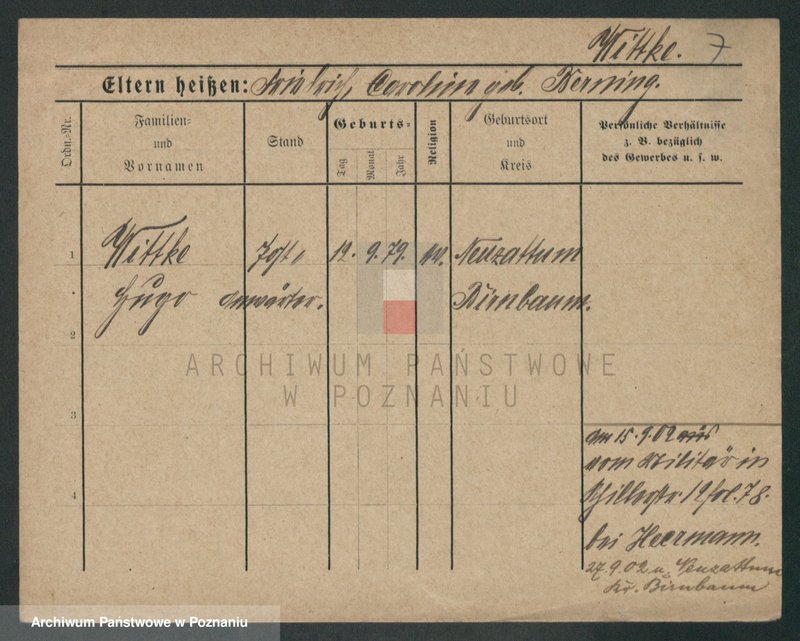 Wittke. 7
Eltern heißen: Friedrich, Caroline geb. Berning.
Ordn.-Nr.
Familien=
und
Vornamen
Stand
Geburts=
Tag
Monat
Jahr
Religion
Geburtsort
und
Kreis
Persönliche Verhältnisse
z. B. bezüglich
des Gewerbes u. s. w.
1 Wittke 19. 9. 79. Neuzattum
Hugo anwärter. Birnbaum.
2
3
4
am 15.9.02 aus
vom Militär in
Schillerstr. 19 fol. 78.
bei Heermann.
27.9.02 n. Neuzattum
Kr. Birnbaum
ARCHIWUM PAŃSTWOWE
W POZNANIU
Archiwum Państwowe w Poznaniu